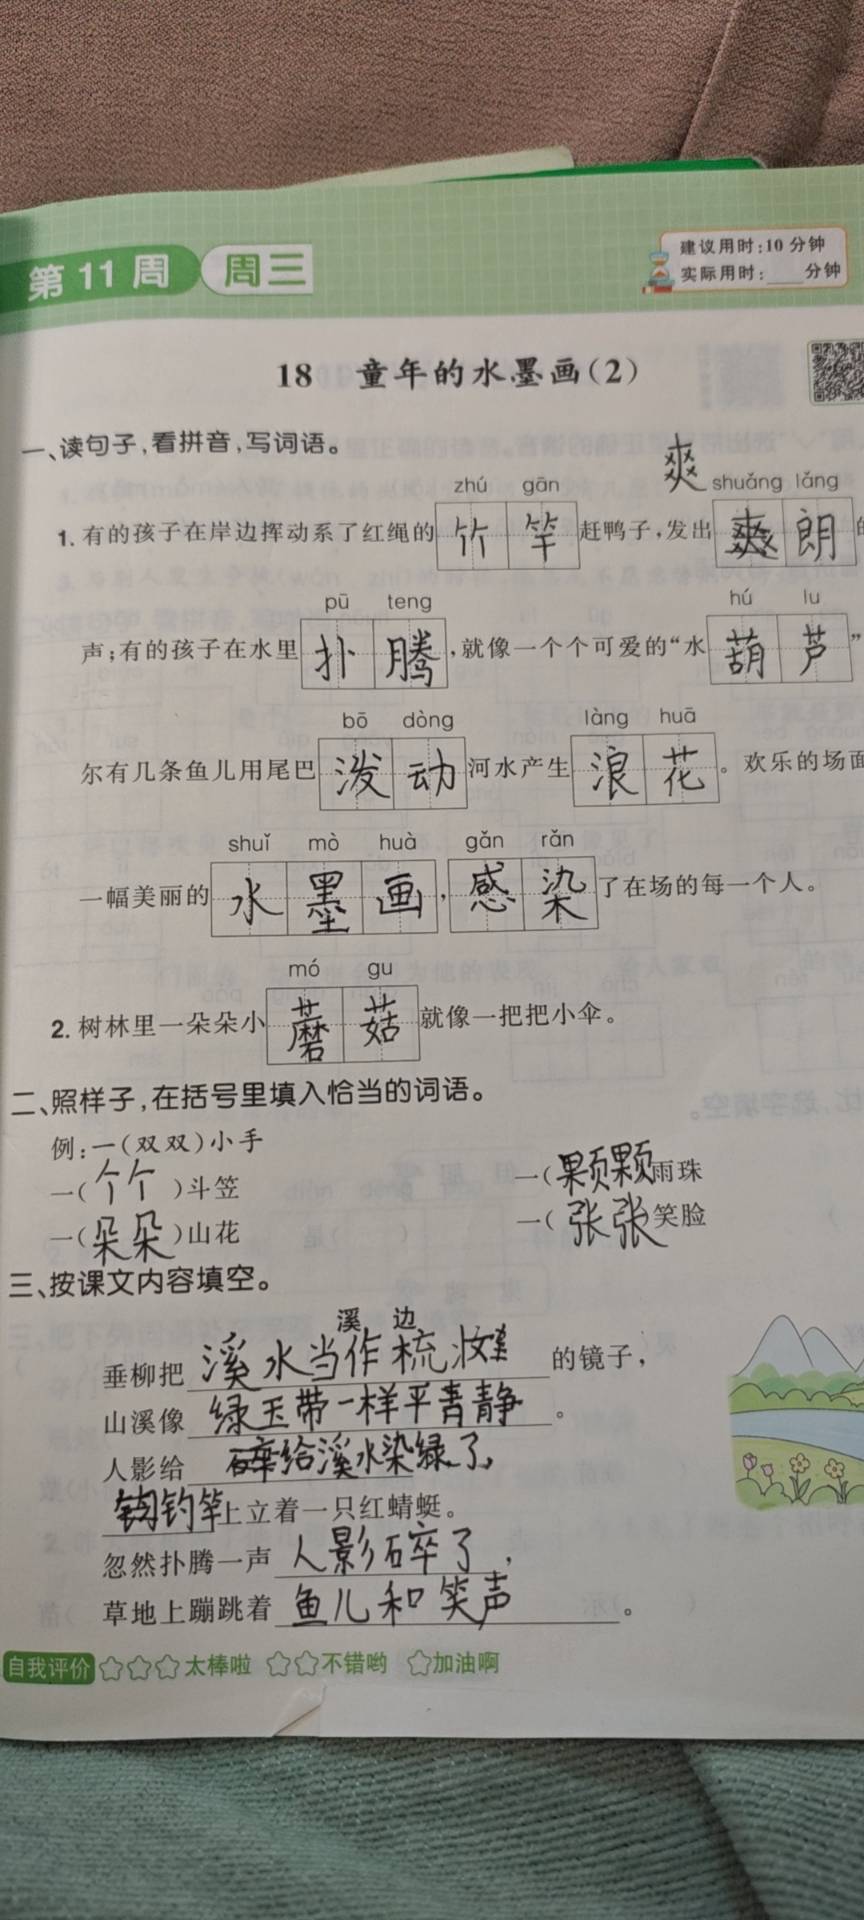 第11周 周三
建议用时:10分钟
实际用时:____分钟
18 童年的水墨画(2)
一、读句子,看拼音,写词语。
爽
zhú gān shuǎng lǎng
1. 有的孩子在岸边挥动系了红绳的竹竿赶鸭子,发出爽朗的
pū teng hú lu
声;有的孩子在水里扑腾,就像一个个可爱的“水葫芦”
bō dòng làng huā
尔有几条鱼儿用尾巴泼动河水产生浪花。欢乐的场面
shuǐ mò huà gǎn rǎn
一幅美丽的水墨画,感染了在场的每一个人。
mó gu
2. 树林里一朵朵小蘑菇就像一把把小伞。
二、照样子,在括号里填入恰当的词语。
例:一(双双)小手
一(个个)斗笠 一(颗颗)雨珠
一(朵朵)山花 一(张张)笑脸
三、按课文内容填空。
溪边
垂柳把溪水当作梳妆的镜子,
山溪像绿玉带一样平静。
人影给溪水染绿了,
钓竿上立着一只红蜻蜓。
忽然扑腾一声人影碎了,
草地上蹦跳着鱼儿和笑声。
自我评价 ☆☆☆太棒啦 ☆☆不错哟 ☆加油啊